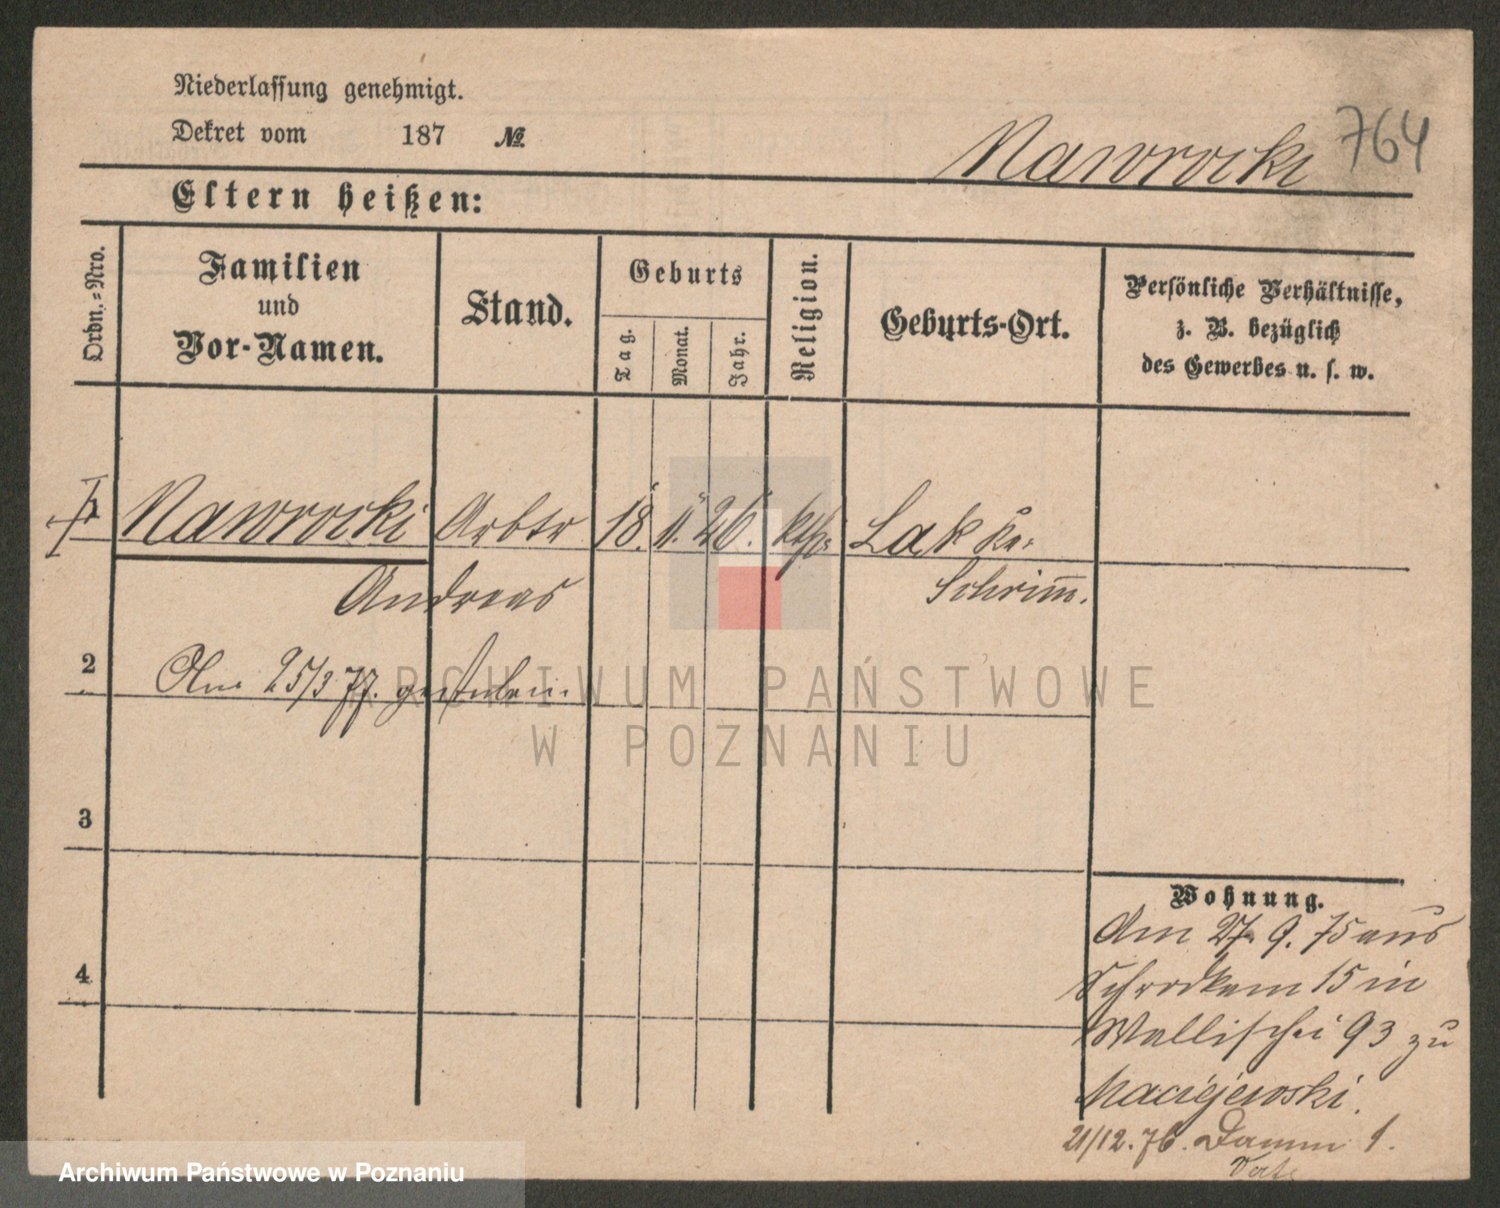 Niederlassung genehmigt.
Dekret vom 187 №
Nawrocki 764
Eltern heißen:
Ordn.-Nro.
Familien
und
Vor-Namen.
Stand.
Geburts
Tag.
Monat.
Jahr.
Religion.
Geburts-Ort.
Persönliche Verhältnisse,
z. B. bezüglich
des Gewerbes u. s. w.
1 Nawrocki Arbtr 18. 11. 26. kth. Lak Kr.
Andreas Schrimm.
2 Am 25/3 77. gestorben.
ARCHIWUM PAŃSTWOWE
W POZNANIU
3
4
Wohnung.
Am 27. 9. 75 aus
Schrodkam 15 in
Wallischei 93 zu
Maciejewski.
21/12. 76. Damm 1.
Archiwum Państwowe w Poznaniu